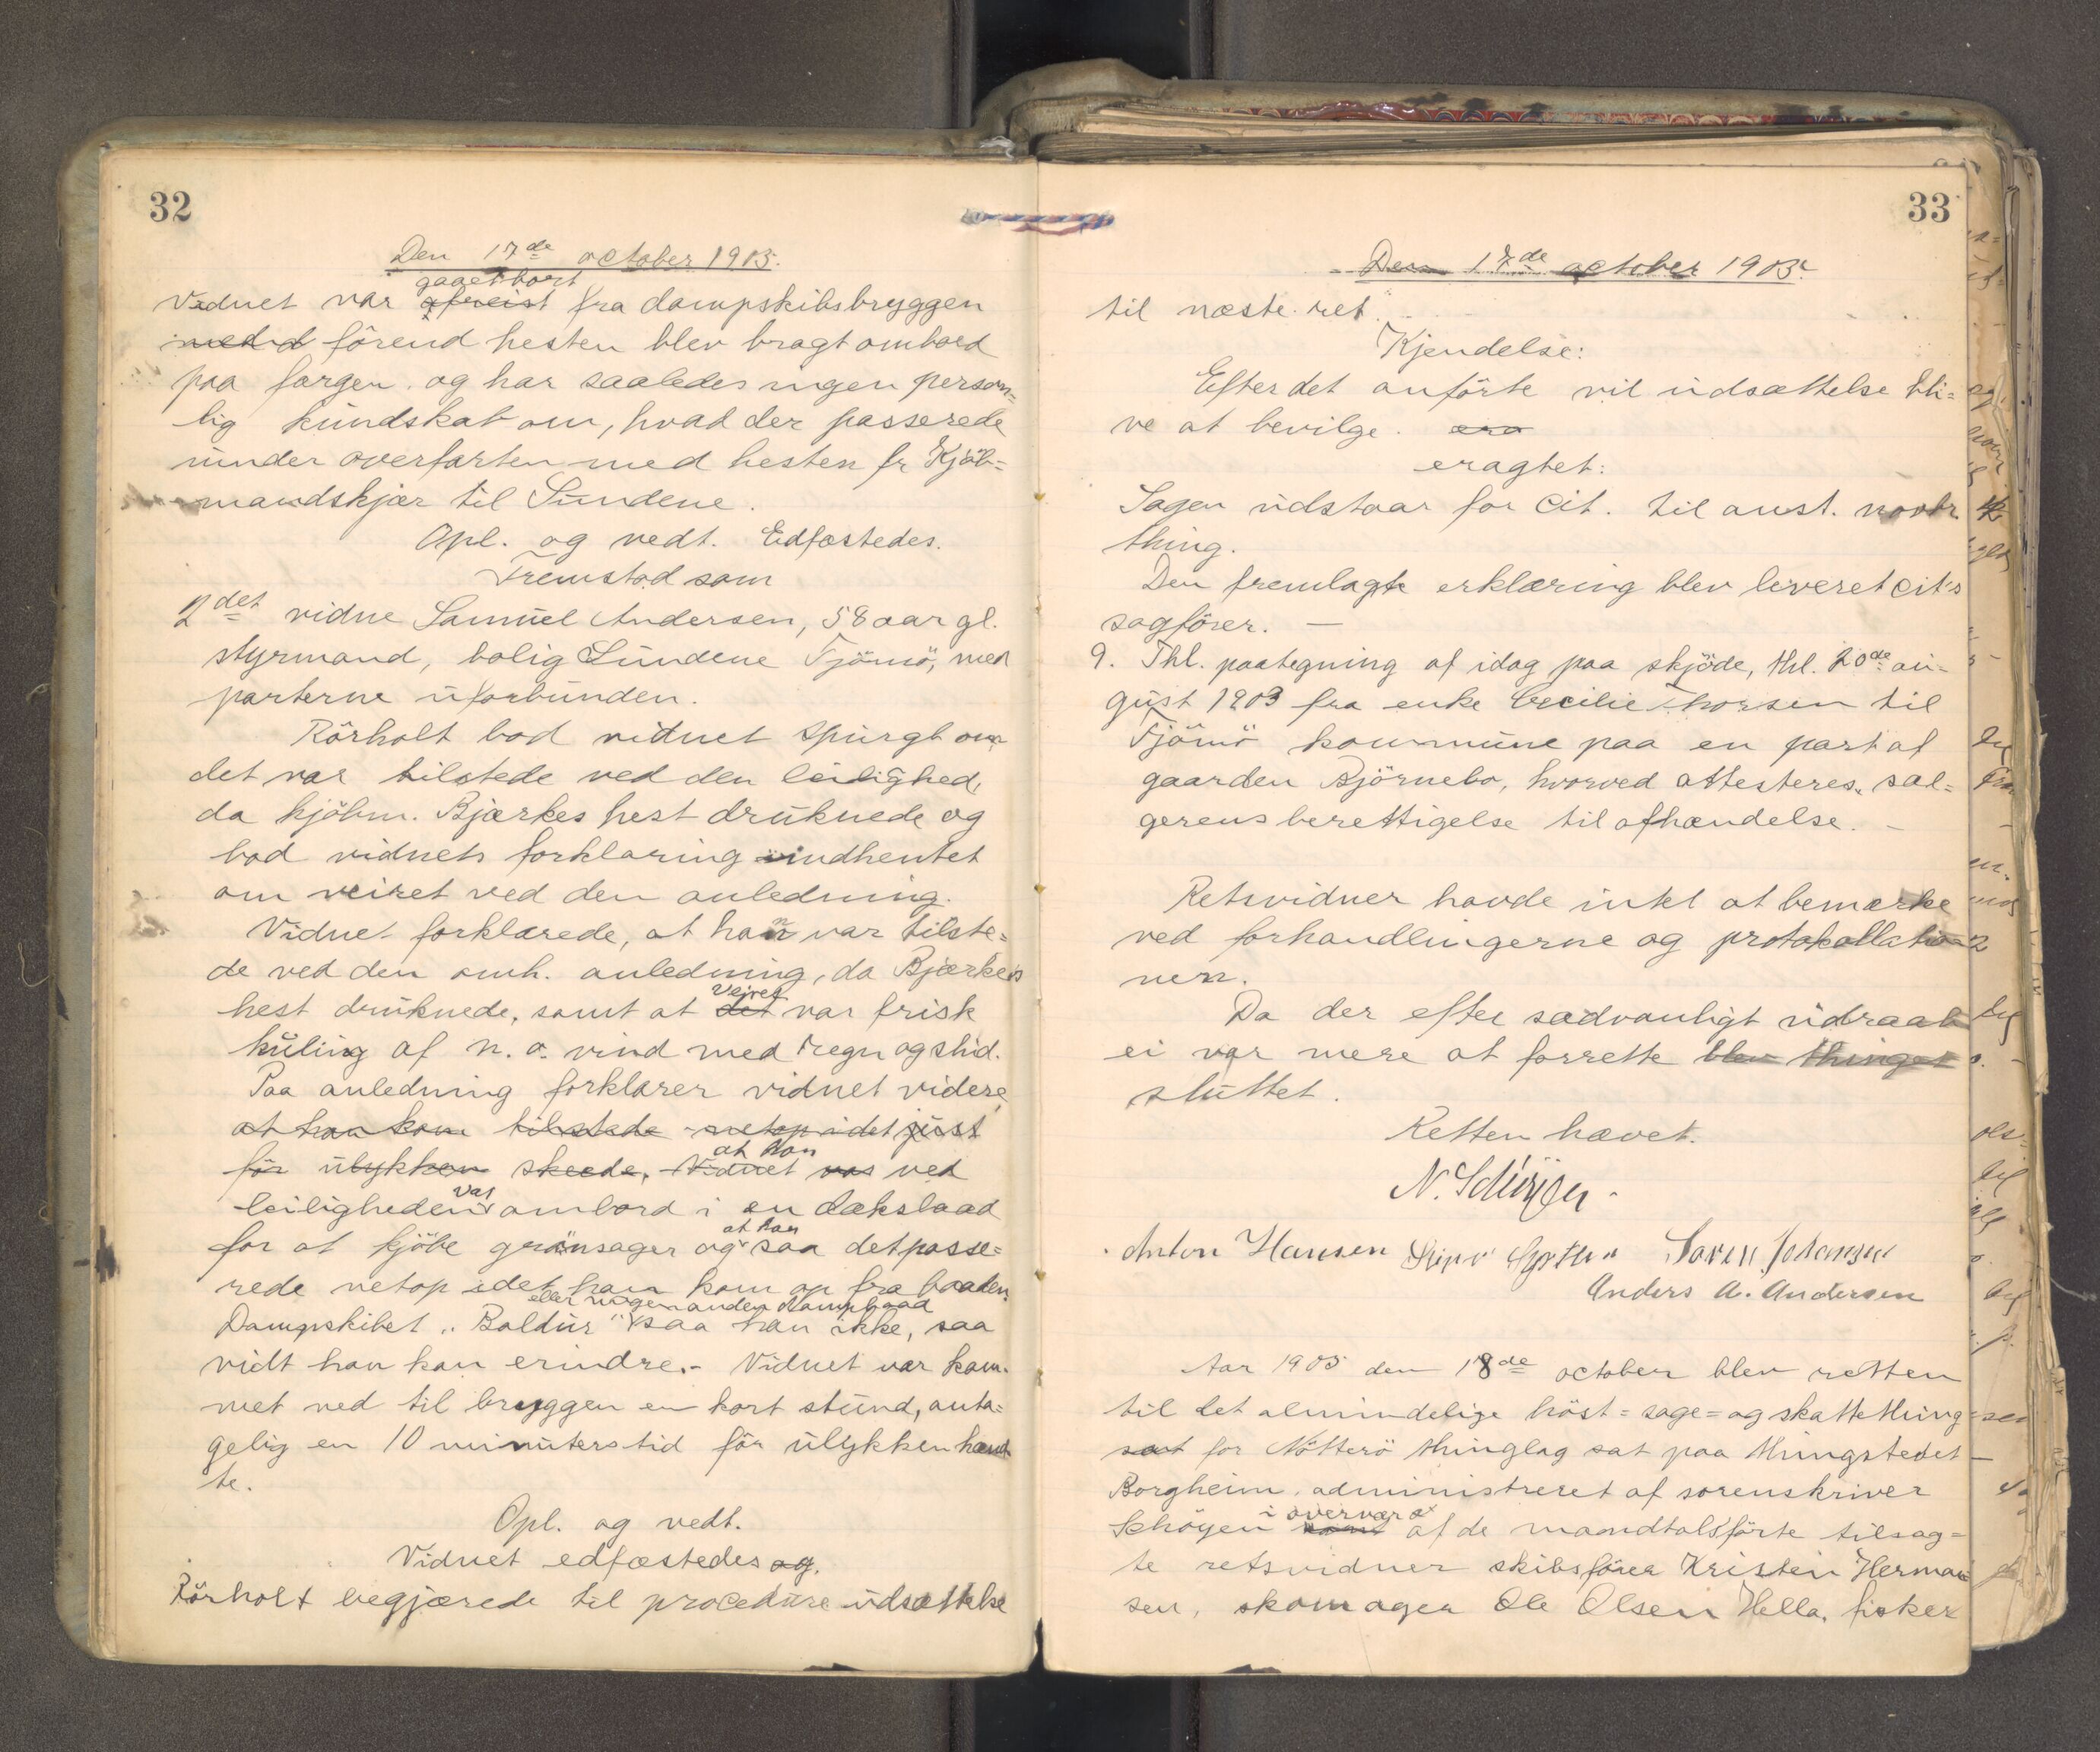 32
Den 17de october 1905.
gaaet bort
Vidnet var afreist fra dampskibsbryggen
förend hesten blev bragt ombord
paa færgen og har saaledes ingen person=
lig kundskab om, hvad der passerede
under overfarten med hesten fr Kjöb=
mandskjær til Sundene.
Opl. og vedt. Edfæstedes.
Fremstod som
2det vidne Samuel Andersen, 58 aar gl.
styrmand, bolig Sundene Tjömö, med
parterne uforbunden.
Rörholt bad vidnet spurgt om
det var tilstede ved den leilighed,
da kjöbm. Bjærkes hest druknede og
bad vidnets forklaring indhentet
om veiret ved den anledning.
Vidnet forklarede, at han var tilste=
de ved den omh. anledning, da Bjærkes
veiret
hest druknede, samt at det var frisk
kuling af n. o. vind med regn og slud.
Paa anledning forklarer vidnet videre
at han kom tilstede netop idet just
at han
för ulykken skeede. Vidnet var ved
var
leiligheden ombord i en dæksbaad
at han
for at kjöbe grönsager og saa det passe=
rede netop idet han kom op fra baaden.
eller nogen anden dampbaad
Dampskibet "Baldur" saa han ikke, saa
vidt han kan erindre.- Vidnet var kom-
met ned til bryggen en kort stund, anta=
gelig en 10 minuters tid för ulykken hænd
te.
Opl. og vedt.
Vidnet edfæstedes og.
Rörholt begjærede til procedure udsættelse
33
Den 17de october 1905.
til næste ret.
Kjendelse:
Efter det anförte vil udsættelse bli=
ve at bevilge.
eragtet:
Sagen udstaar for cit. til anst. novbr.
thing.
Den fremlagte erklæring blev leveret cit's
sagförer. —
9. Thl. paategning af idag paa skjöde, thl. 20de au=
gust 1903 fra enke Cecilie Thorsen til
Tjömö kommune paa en part af
gaarden Björnebo, hvorved attesteres sæl=
gerens berettigelse til afhændelse. —
Retsvidner havde intet at bemærke
ved forhandlingerne og protokollatio
nen.
Da der efter sædvanligt udraab
ei var mere at forrette blev thinget
sluttet.
Retten hævet.
N. Schöyen
Anton Hansen Sören Johansen
Anders A. Andersen
Aar 1905 den 18de october blev retten
til det almindelige höst= sage= og skattething
sat for Nötterö thinglag sat paa thingstedet
Borgheim, administreret af sorenskriver
i overvær
Schöyen af de mandtalsförte tilsag=
te retsvidner skibsförer Kristen Herman
sen, skomager Ole Olsen Hella, fisker